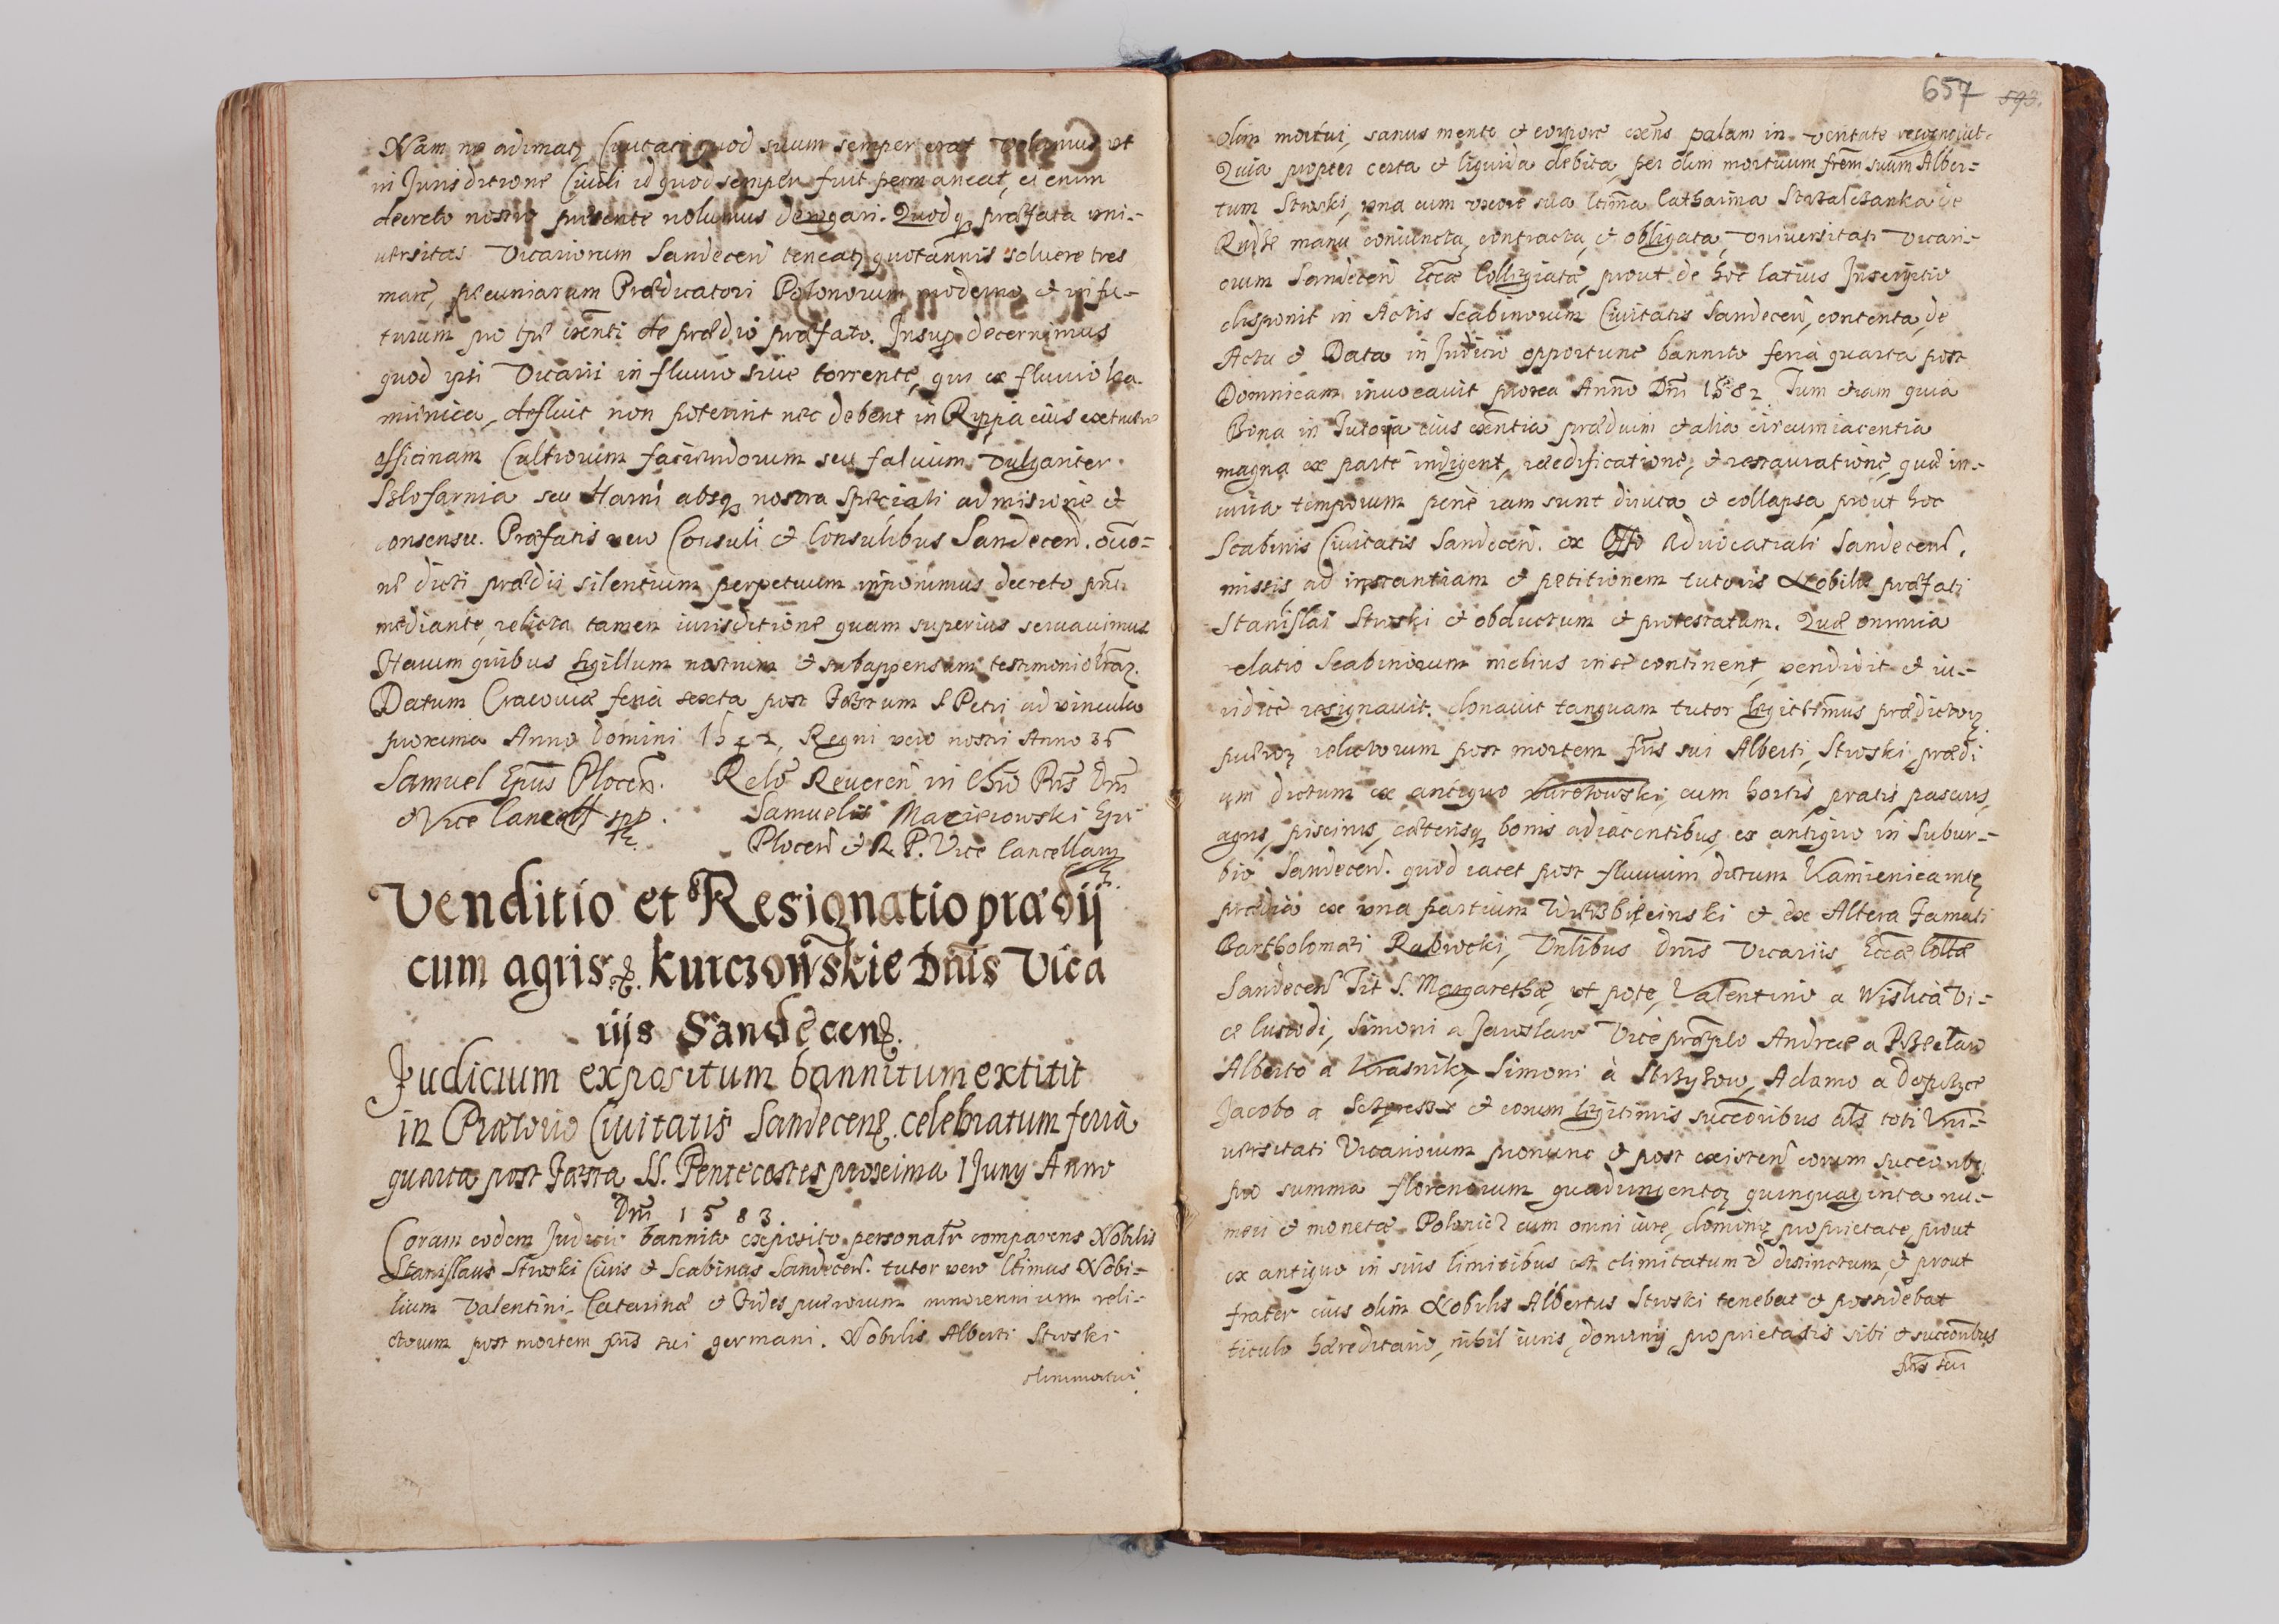 Nam ne adimatʒ Ciuitati quod suum semper erat volumus vt
in Jurisdictione Ciuili id quod semper fuit permaneat, ei enim
decreto nostro præsente nolumus derogari. Quodqʒ præfata vni-
uersitas Vicariorum Sandecen̄ teneatʒ quotannis soluere tres
marc̄, pecuniarum Prædicatori Polonorum moderno et in fu-
turum pro tp̄e exn̄ti de prædio præfato. Insup decernimus
quod ipsi Vicarii in fluuio siue torrente, qui ex fluuio ka-
mienica, defluit non poterint nec debent in Rippa eius extruere
officinam Cultrorum faciendorum seu falcium vulgariter
seu Hami absqʒ nostra speciali admissione et
consensu. Præfatis vero Consuli et Consulibus Sandecen̄.
ne dicti prædii silentium perpetuum imponimus decreto pn̄ti
mediante, relicta tamen iurisdictione quam superius seruauimus
Harum quibus sigillum nostrum est subappensum testimonio lr̄aʒ.
Datum Cracouiæ feria sexta post Festum S Petri ad vincula
proxima Anno Domini 1542, Regni vero nostri Anno 36
Samuel Ep̄us Plocen̄. Relō Reueren̄ in Chr̄o Pr̄is Dn̄i
et Vice Cancell Samuelis Macieiowski Ep̄i
Plocen̄ et R. P. Vice Cancellarij
Venditio et Resignatio prædij
cum agris etc. kurczowskie Dn̄is Vica
rijs Sandecen.
Judicium expositum bannitum extitit
in Prætorio Ciuitatis Sandecen. celebratum feria
quarta post Festa SS. Pentecostes proxima 1 Juny Anno
Dn̄i 1583
Coram eodem Judicio bannito exposito personalr̄ comparens Nobilis
Stanislaus Stroski Ciuis et Scabinus Sandecen̄. tutor vero ltimus Nobi-
lium Valentini, Catarinæ et puerorum minorennium reli-
ctorum post mortem frīs sui germani. Nobilis Alberti Stroski
olim mortui
657 593.
olim mortui, sanus mente et corpore exn̄s palam in veritate recognouit.
Quia propter certa et liquida debita, per olim mortuum frēm suum Alber-
tum Stroski, vna cum vxore sua ltima Catharina de
manu coniuncta, contracta, et obligata, vniuersitati vicari-
orum Sandecen̄ Ecc̄æ Collegiatæ, prout de hoc latius Inscriptio
disponit in Actis Scabinorum Ciuitatis Sandecen̄, contenta, de
Actu et Data in Judicio opportune bannito feria quarta post
Domnicam inuocauit proxa Anno Dn̄i 1582. Tum etiam quia
Bona in Tutoria eius exn̄tia prædium et alia circumiacentia
magna ex parte indigent, reedificatione, et restauratione, quæ in-
iuria temporum penè iam sunt diruta et collapsa, prout hoc
Scabinis Ciuitatis Sandecen̄. ex Offo Aduocatiali Sandecen̄.
missis, ad instantiam et petitionem tutoris Nobilis præfati
Stanislai Stroski et obductum et protestatum. Quæ omnia
relatio Scabinorum melius in se continent, vendidit et iu-
ridice resignauit. donauit tanquam tutor legittimus prædictorʒ
pueroʒ relictorum post mortem frīs sui Alberti, Stroski, prædi
um dictum ex antiquo kurczowski, cum hortis, pratis, pascuis,
agris, piscinis, cæterisqʒ bonis adiacentibus, ex antiquo in Subur-
bio Sandecen̄. quod iacet post fluuium dictum Kamienica intʒ
prædia ex vna partium et ex Altera Famati
Bartholomæi, Vn̄libus Dn̄is Vicariis, Ecc̄æ Collt̄æ
Sandecen̄ Tit S. Margarethæ, vt pote, Valentino a Wislica Vi-
ce Custodi, Simoni a Jaroslaw Vice præpto Andreæ a
Alberto a Krasnik, Simoni à Strzyżow, Adamo a
Jacobo a et eorum legitimis succēoribus als toti Vni-
uersitati Vicariorum pronunc et post existen̄ eorum succeoribʒ
pro summa florenorum quadringentoʒ quinquaginta nu-
meri et monetæ Polonic̄ cum omni iure, dominio, proprietate, prout
ex antiquo in suis limitibus est climitatum et distinctum, et prout
frater eius olim Nobilis Albertus Stroski tenebat et possidebat
titulo hæreditario, nihil iuris, dominij, proprietatis sibi et succeoribus
frīs sui